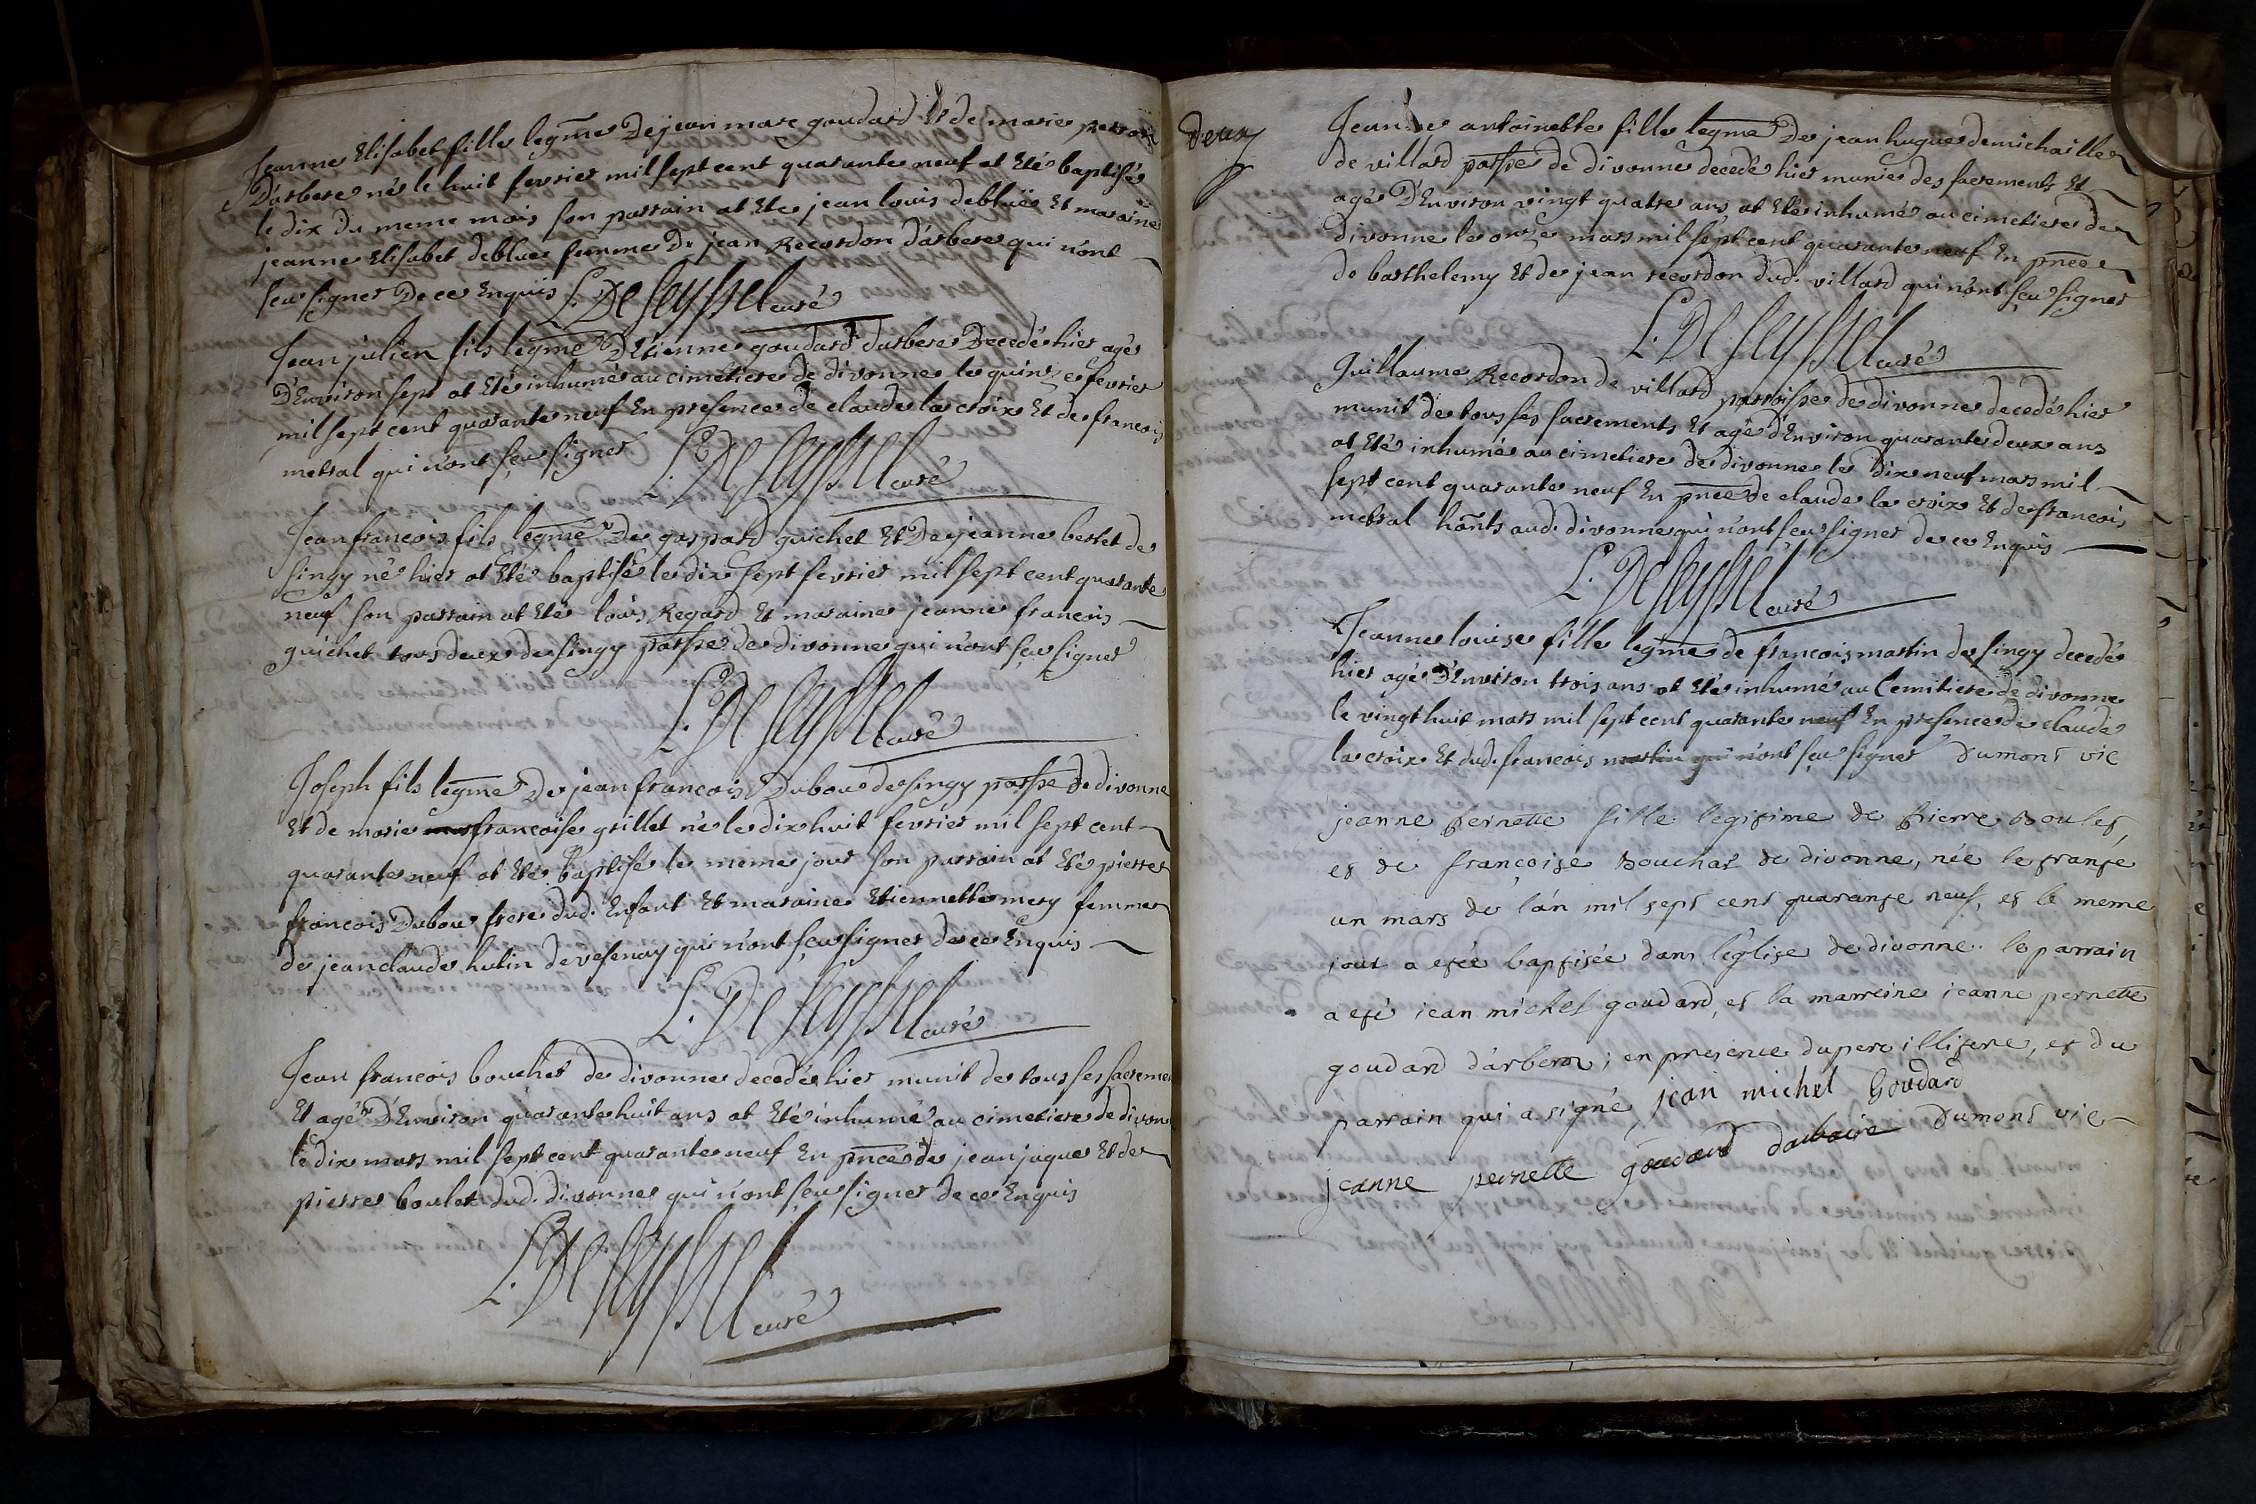 Jeanne Elisabet fille legme De jean marc goudard Et de marie perron
D'arbere née le huit fevrier mil sept cent quarante neuf at Eté baptisée
le dix du meme mois son parrain at Ete jean louis deblüe Et maraine
jeanne Elisabet deblüe femme De jean Recordon d'arbere qui n'ont
sceu signer De ce Enquis L. De Seyssel curé
Jean julien fils legme D'Etienne goudard d'arbere Decedé hier agé
D'Environ sept at Eté inhumé au cimetiere de divonne le quinze fevrier
mil sept cent quarante neuf En presence de claude la croix Et de francois
metral qui n'ont sçeu signer L. De Seyssel curé
Jean francois fils legme De gaspard guichet Et De jeanne bertet de
singy né hier at Eté baptisé le dix sept fevrier mil sept cent quarante
neuf son parrain at Eté loüis Regard Et maraine jeanne francois
guichet tous deux de singy parsse de divonne qui n'ont sçeu signer
L. De Seyssel curé
Joseph fils legme De jean francois Dubou de singy parsse de divonne
Et de marie francoise grillet né le dix huit fevrier mil sept cent
quarante neuf at Eté Baptisé le meme jour son parrain at Eté pierre
francois Dubou frere dud. Enfant Et maraine Etiennette mery femme
de jean claude hutin de vesenay qui n'ont sçeu signer de ce Enquis
L. De Seyssel curé
Jean francois bouchet de divonne decedé hier munit de tous ses sacremen
Et agé D'Environ quarante huit ans at Eté inhumé au cimetiere de divon
le dix mars mil sept cent quarante neuf En pnce de jean jaque Et de
pierre boulet dud. divonne qui n'ont sçeu signer de ce Enquis
L. De Seyssel curé
Deux
Jeanne antoinette fille legme De jean hugue demichaille
de villard parsse de divonne decedé hier munie des sacrements Et
agée D'Environ vingt quatre ans at Eté inhumé au cimetiere de
divonne le onze mars mil sept cent quarante neuf En pnce
de barthelemy Et de jean recordon dud. villard qui n'ont sçeu signer
L. De Seyssel curé
Guillaume Recordon de villard parroisse de divonne decedé hier
munit de tous ses sacrements Et agé d'Environ quarante deux ans
at Eté inhumé au cimetiere de divonne le dix neuf mars mil
sept cent quarante neuf En pnce de claude la croix Et de francois
metral hants aud. divonne qui n'ont sceu signer de ce Enquis
L. De Seyssel curé
Jeanne louise fille legme de francois martin de singy decedé
hier agé D'Environ trois ans at Eté inhumé au Cemitiere de divonne
le vingt huit mars mil sept cent quarante neuf En presence de claude
la croix Et dud. francois martin qui n'ont sçeu signer Dumont vic
jeanne pernette fille legitime de pierre Boulet,
et de françoise Bouchat de divonne, née le trante
un mars de l'an mil sept cent quarante neuf, et le meme
jour a eté baptisée dans l'église de divonne. le parrain
a eté jean michel goudard, et la marreine jeanne pernette
goudard d'arbere; en presence du pere illiterè, et du
parrain qui a signé, jean michel Goudard
jeanne pernette goudard darbaire Dumont vic